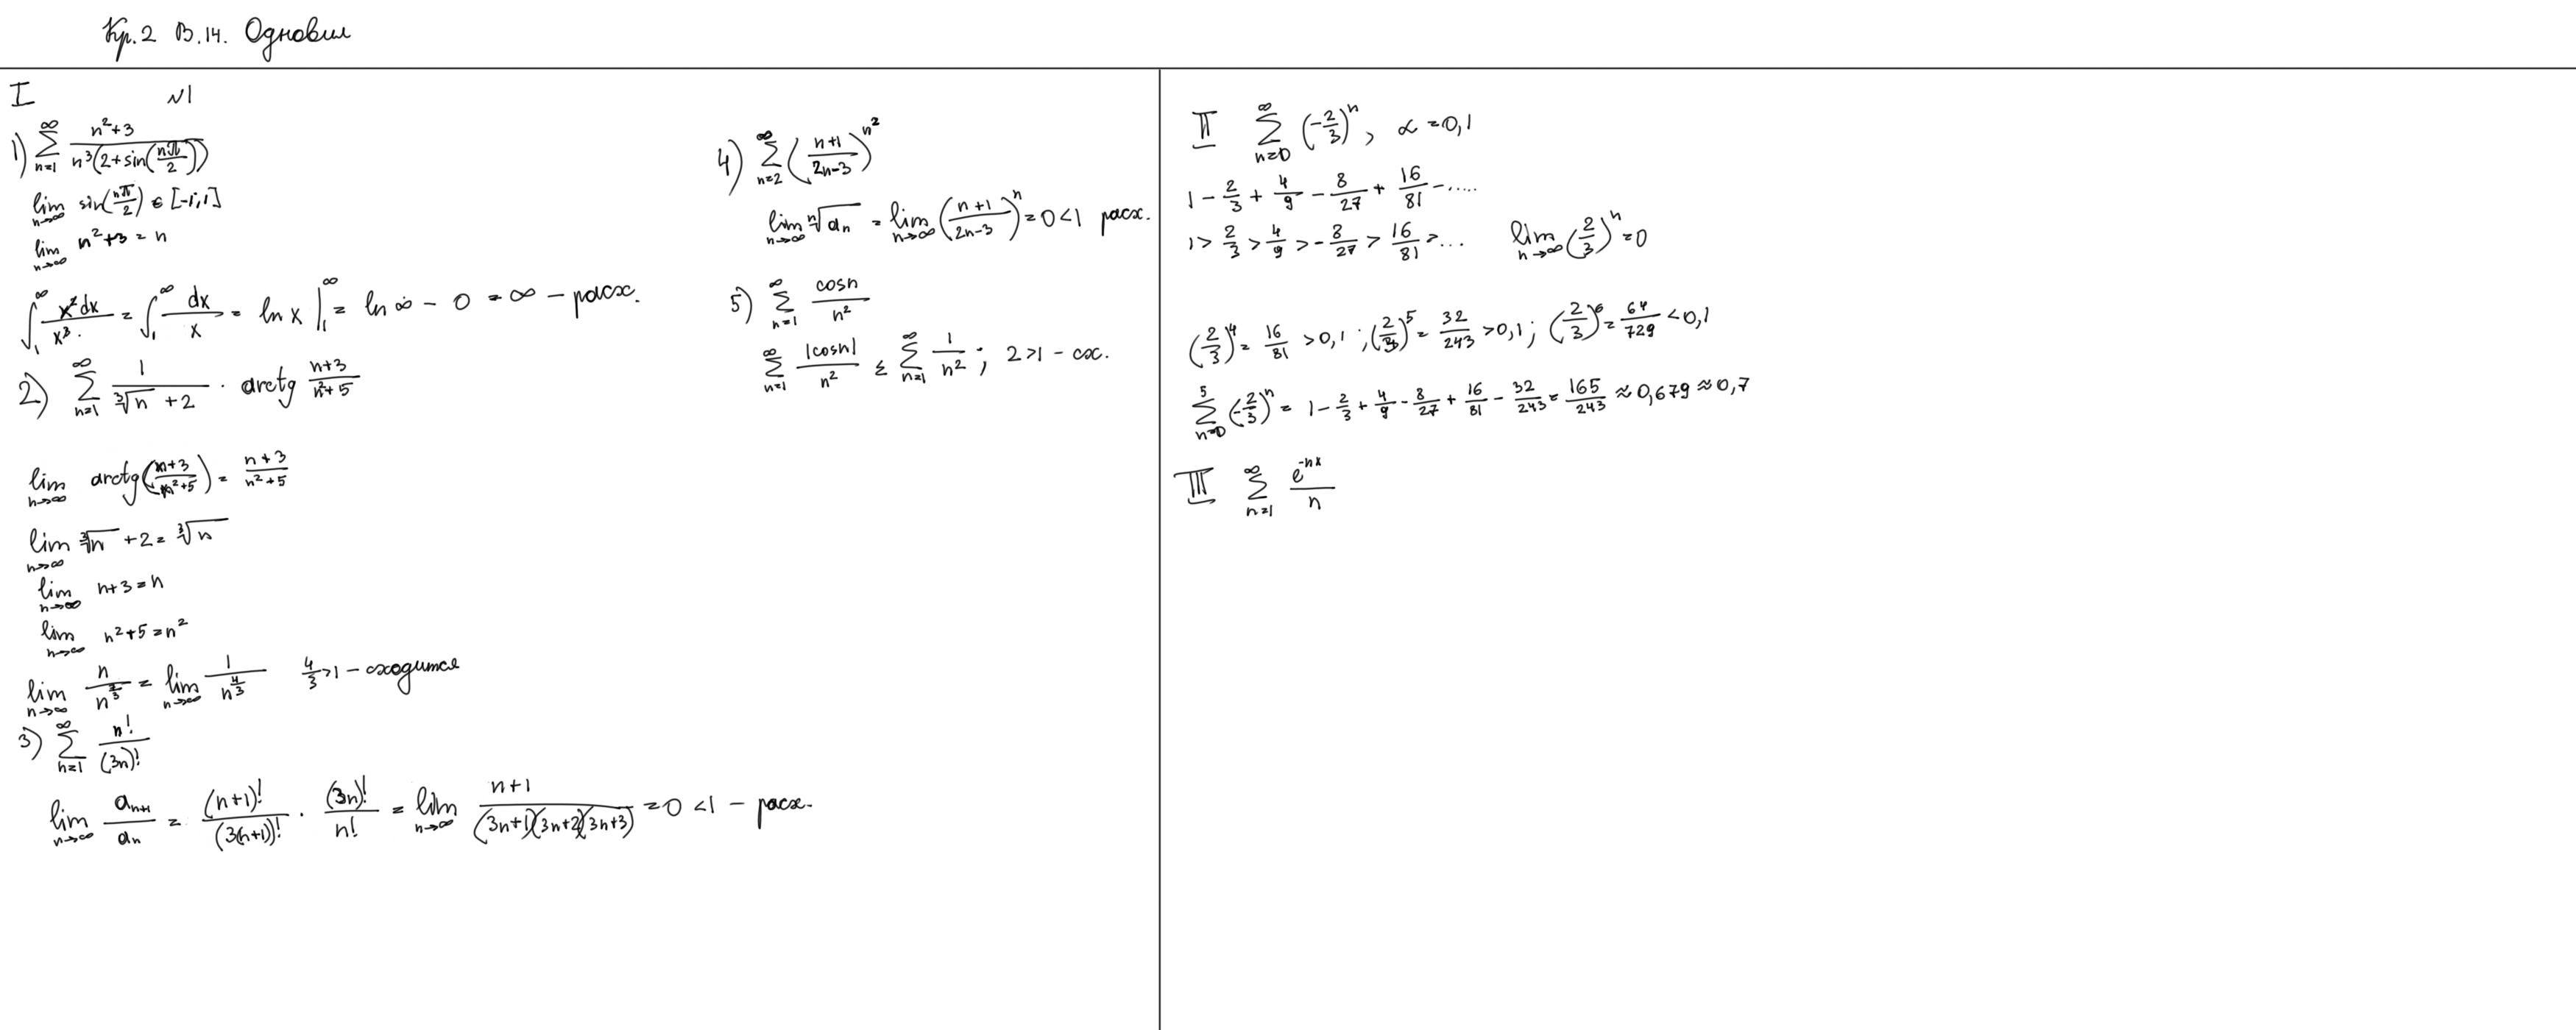 Кр.2 В.14. Одновил
I №1
1) ∑_{n=1}^{∞} (n²+3)/(n³(2+sin(nπ/2)))
lim_{n→∞} sin(nπ/2) ∈ [-1;1]
lim_{n→∞} n²+3 = n
∫_1^∞ x²dx/x³ = ∫_1^∞ dx/x = ln x |_1^∞ = ln ∞ - 0 = ∞ - расх.
2) ∑_{n=1}^{∞} 1/(∛n +2) · arctg (n+3)/(n²+5)
lim_{n→∞} arctg((n+3)/(n²+5)) = (n+3)/(n²+5)
lim_{n→∞} ∛n +2 = ∛n
lim_{n→∞} n+3 = n
lim_{n→∞} n²+5 = n²
lim_{n→∞} n/n^{7/3} = lim_{n→∞} 1/n^{4/3} 4/3>1 - сходится
3) ∑_{n=1}^{∞} n!/(3n)!
lim_{n→∞} a_{n+1}/a_n = (n+1)!/(3(n+1))! · (3n)!/n! = lim_{n→∞} (n+1)/((3n+1)(3n+2)(3n+3)) = 0 <1 - расх.
4) ∑_{n=2}^{∞} ((n+1)/(2n-3))^{n²}
lim_{n→∞} ⁿ√a_n = lim_{n→∞} ((n+1)/(2n-3))^n = 0<1 расх.
5) ∑_{n=1}^{∞} cosn/n²
∑_{n=1}^{∞} |cosn|/n² ≤ ∑_{n=1}^{∞} 1/n² ; 2>1 - сх.
II ∑_{n=0}^{∞} (-2/3)^n, α=0,1
1 - 2/3 + 4/9 - 8/27 + 16/81 - .....
1 > 2/3 > 4/9 > -8/27 > 16/81 > ... lim_{n→∞} (2/3)^n = 0
(2/3)^4 = 16/81 > 0,1 ; (2/3)^5 = 32/243 > 0,1 ; (2/3)^6 = 64/729 < 0,1
∑_{n=0}^{5} (-2/3)^n = 1 - 2/3 + 4/9 - 8/27 + 16/81 - 32/243 = 165/243 ≈ 0,679 ≈ 0,7
III ∑_{n=1}^{∞} e^{-nx}/n